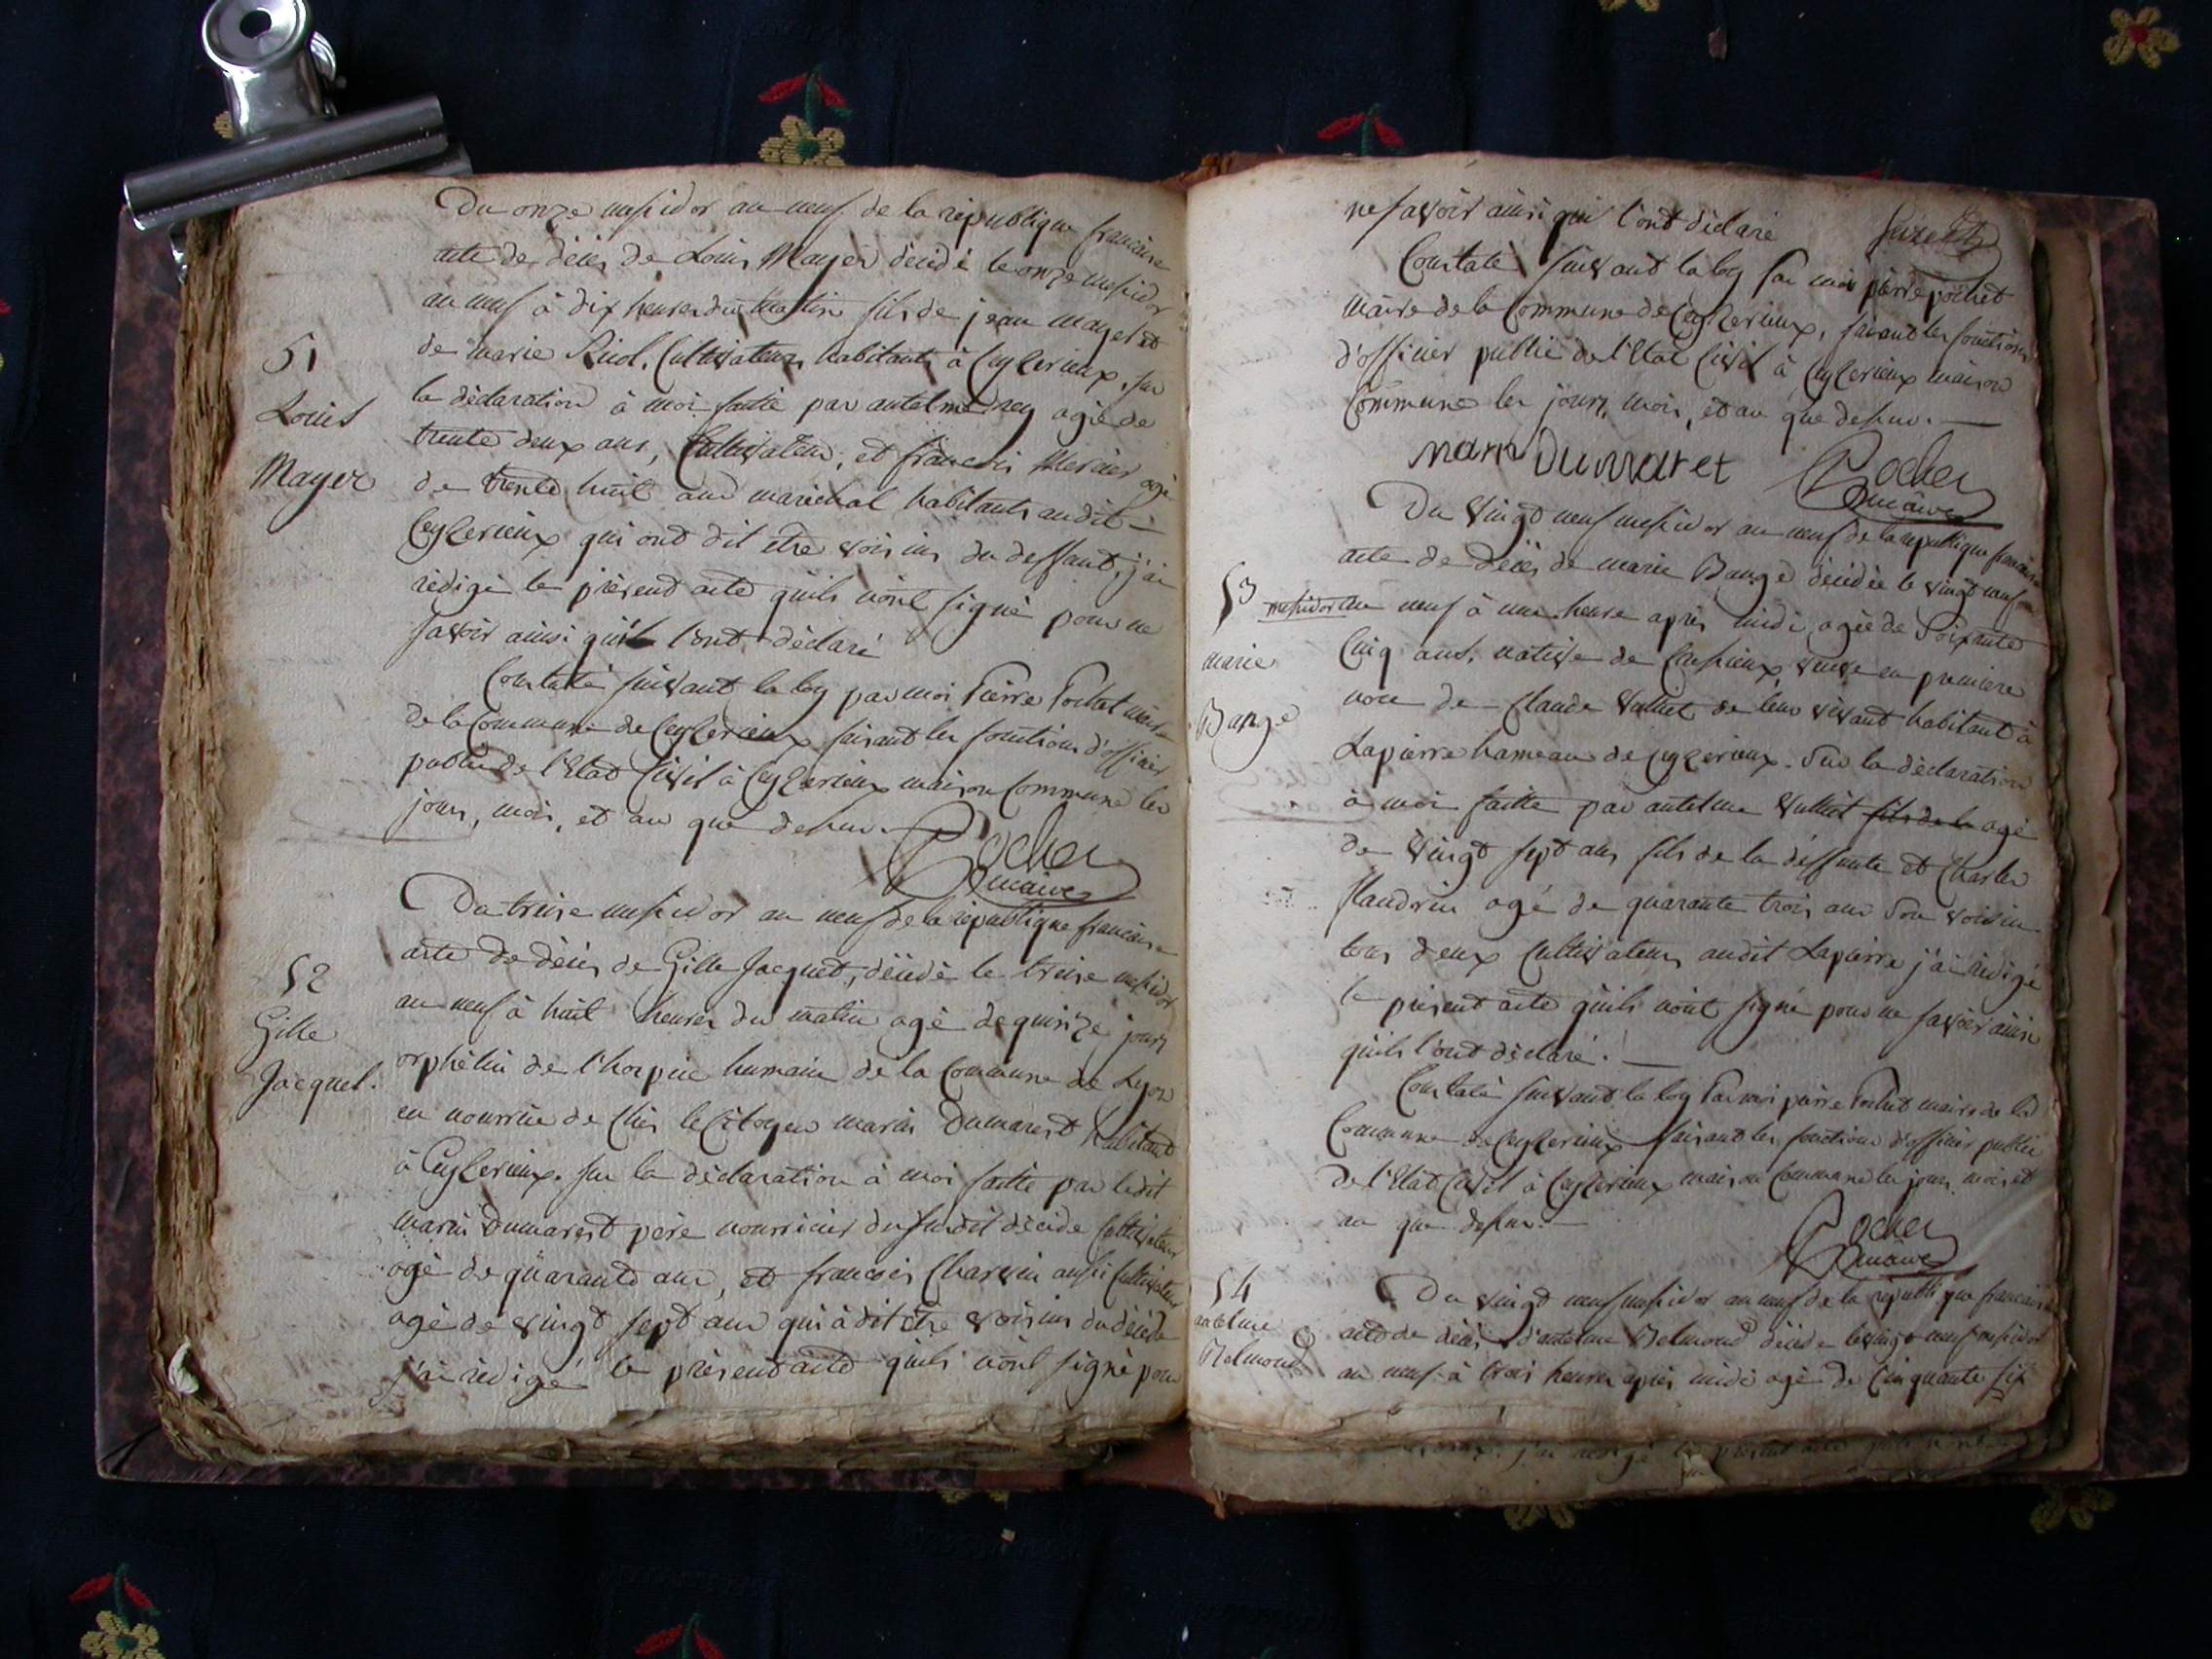 Du onze messidor an neuf de la république francaise
acte de décès de Louis Mayer décédé le onze messidor
an neuf à dix heures du matin fils de jean mayer et
de marie Cultivateurs habitants à Ceyzerieux, sur
51
la déclaration à moi faitte par antelme rey agé de
Louis
trente deux ans, Cultivateur, et francois Mercier agé
Mayer
de trente huit ans marechal habitants audit
Ceyzerieux qui ont dit etre voisins du deffunt, j'ai
rédigé le présent acte quils n'ont signé pour ne
savoir ainsi quil l'ont déclaré
Constaté suivant la loy par moi Pierre Pochet maire
de la Commune de Ceyzerieux faisant les fonctions d'officier
public de l'Etat Civil à Ceyzerieux maison Commune les
jours, mois, et an que dessus.
Pochet
maire
Du treize messidor an neuf de la république francaise
acte de décès de Gille Jacquet, décédé le treize messidor
52
an neuf à huit heures du matin agé de quinze jours
Gille
orphélin de l'hospice humain de la Commune de Lyon
Jacquet.
en nourrice de chès le Citoyen marin Dumarest habitant
à Ceyzerieux. sur la déclaration à moi faitte par ledit
marin Dumarest père nourricier du susdit décédé Cultivateur
agé de quarante ans, et francois Charvin aussi Cultivateur
agé de vingt sept ans qui à dit être voisins du décédé
j'ai rédigé le présent acte quils n'ont signé pour
ne savoir ainsi qui l'ont déclaré
Constaté suivant la loy par moi pierre pochet
maire de la Commune de Ceyzerieux, faisant les fonctions
d'officier public de l'Etat Civil à Ceyzerieux maison
Commune les jours, mois, et an que dessus.
marin Dumaret Pochet
maire
Du vingt neuf messidor an neuf de la republique francaise
acte de décès de marie Bange décédée le vingt neuf
53
messidor an neuf à une heure après midi, agée de Soixante
marie
Cinq ans, native de veuve en premiere
Bange
noce de Claude Vulliet de leur vivant habitant à
Lapierre hameau de Ceyzerieux. Sur la déclaration
à moi faitte par antelme Vulliet fils de la agé
de vingt sept ans fils de la déffunte et Charles
flandrin agé de quarante trois ans Son voisin
tous deux Cultivateurs audit Lapierre j'ai rédigé
le présent acte quils n'ont signé pour ne savoir ainsi
quils l'ont déclaré.
Constaté suivant la loy Par moi pierre Pochet maire de la
Commune de Ceyzerieux faisant les fonctions d'officier public
de l'Etat Civil à Ceyzerieux maison Commune les jours mois et
an que dessus.
Pochet
maire
54
Du vingt neuf messidor an neuf de la republique francaise
antelme
acte de décès d'antelme Belmond décédé le vingt neuf messidor
Belmond
an neuf à trois heures après midi agé de Cinquante six
j'ai redigé le present acte